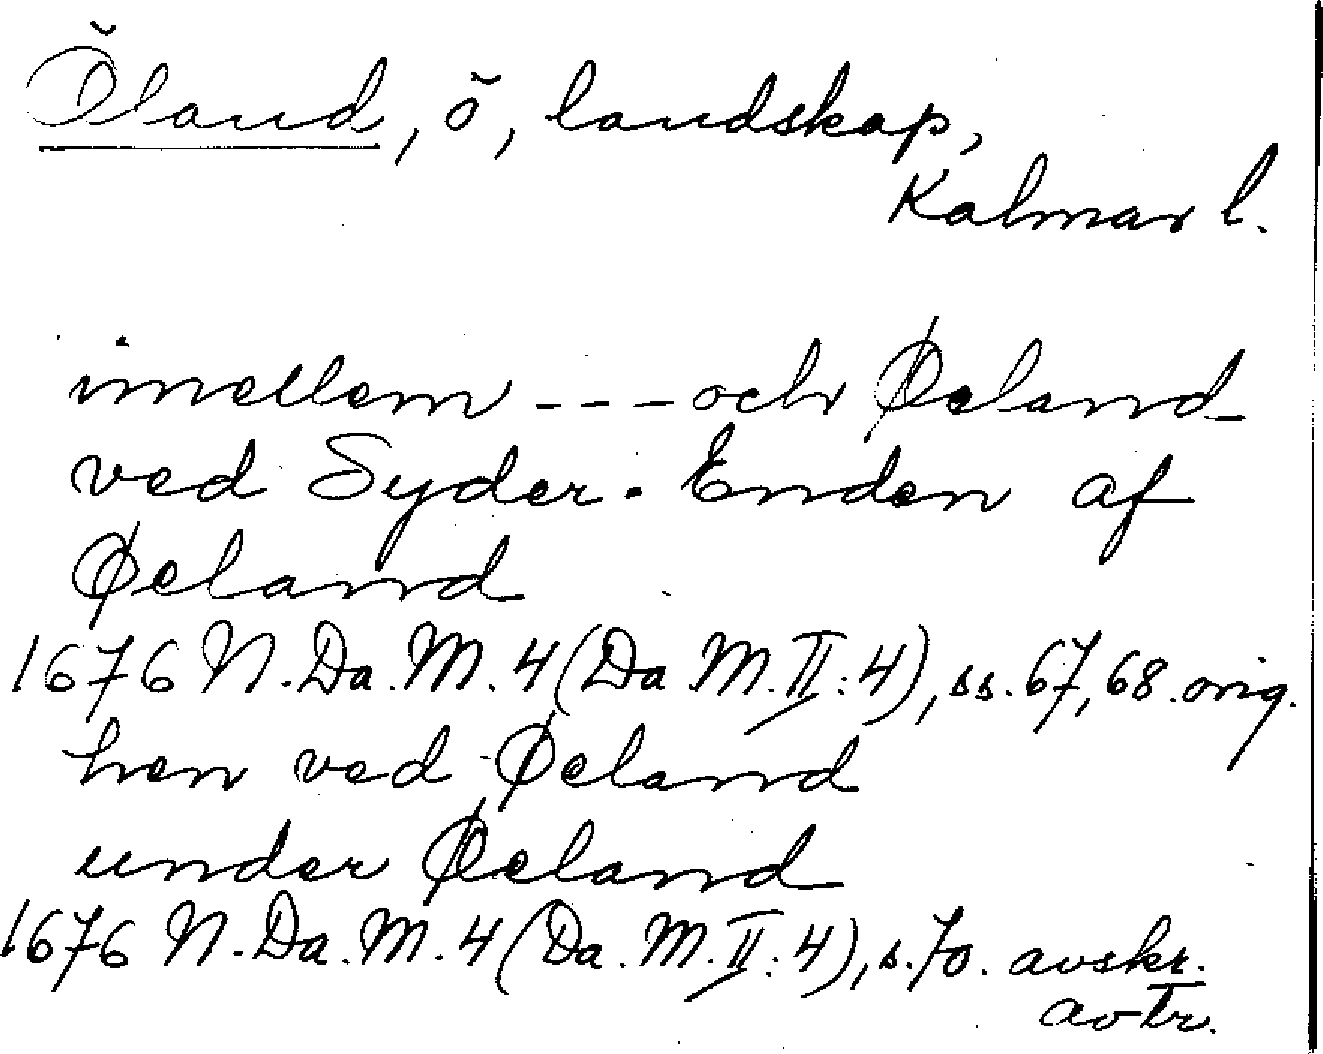 Öland, ö, landskap,
Kalmar l.
imellem --- och Øeland
ved Syder-Enden af
Øeland
1676 N.Da.M.4(Da M.II:4), ss.67,68.orig.
hen ved Øeland
under Øeland
1676 N.Da.M.4(Da.M.II:4), s.70. avskr.
avtr.